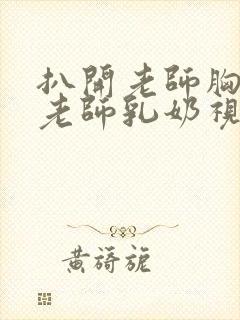 扒開老師胸
老師乳奶視
黃旖旎